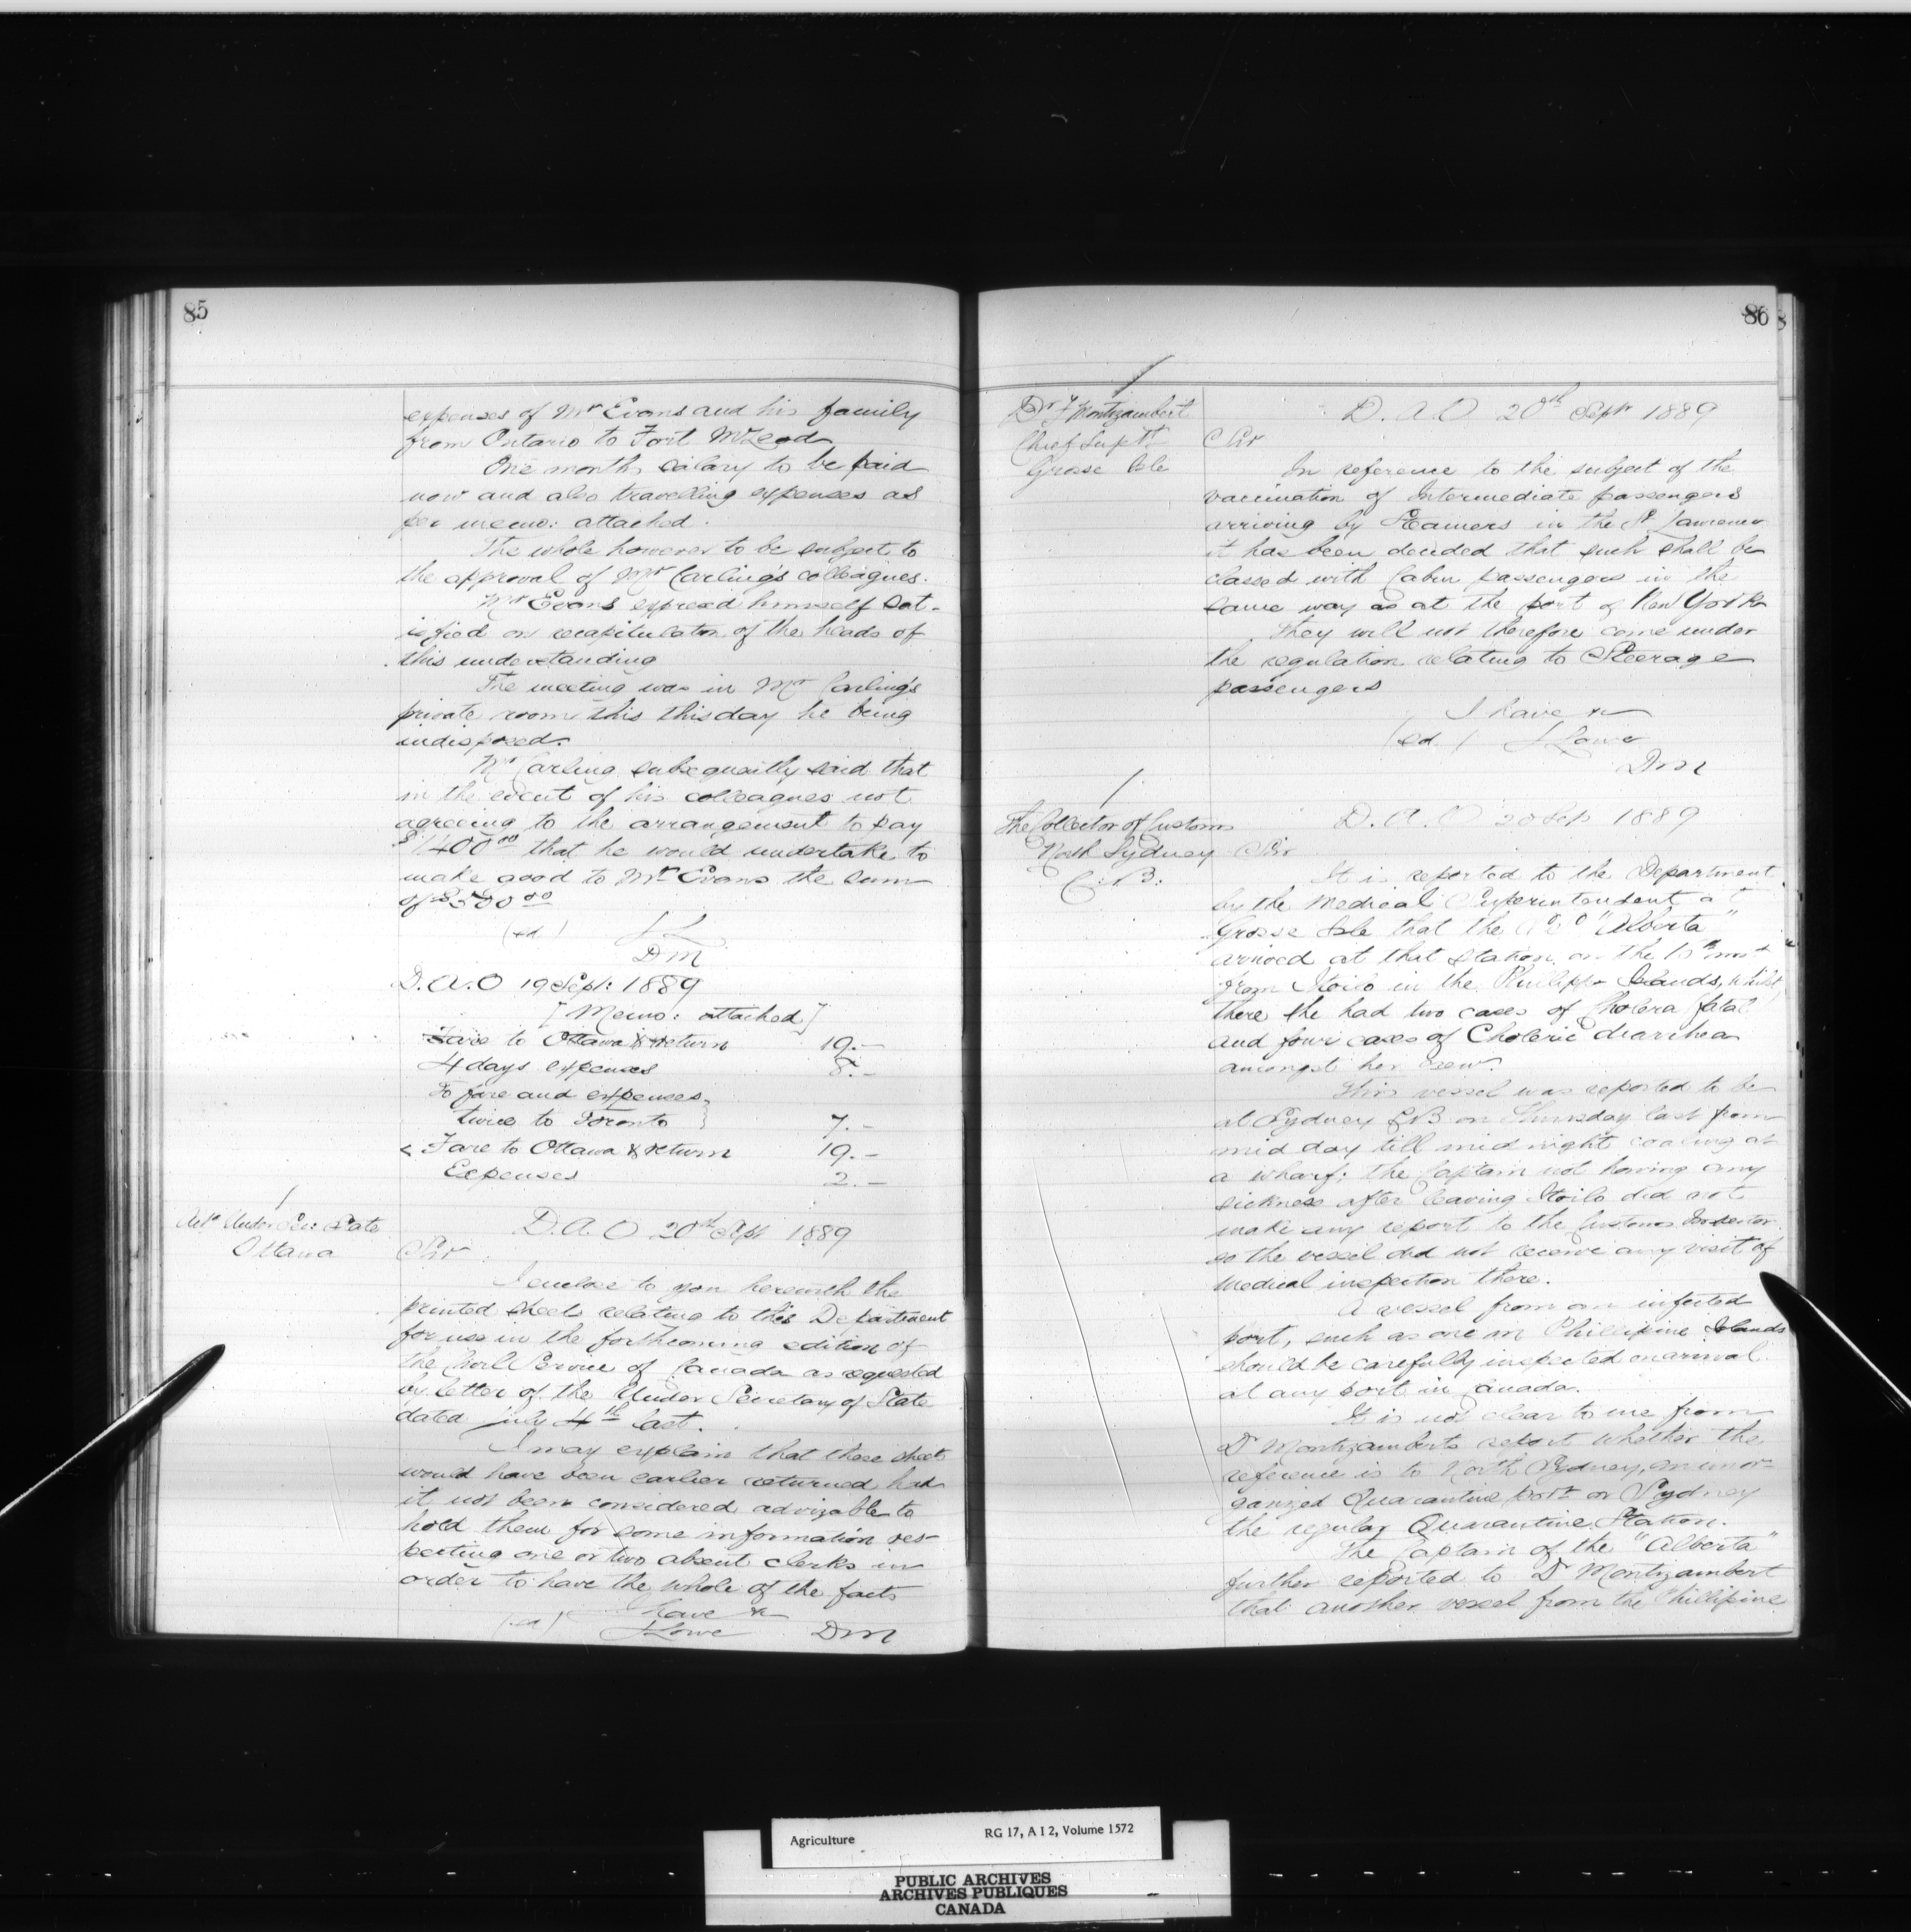 85
expenses of Mr Evans and his family
from Ontario to Fort McLeod
One months salary to be paid
now and also travelling expenses as
per memo: attached.
The whole however to be subject to
the approval of Mr Carling's colleagues.
Mr Evans expressd himself sat-
isfied on recapitulation of the heads of
this understanding
The meeting was in Mr Carling's
private room this this day he being
indisposed.
Mr Carling subsequently said that
in the event of his colleagues not
agreeing to the arrangement to pay
$1400.00 that he would undertake to
make good to Mr Evans the sum
of $500.00
(sd) JL
DM
D.A.O 19 Sept: 1889
[Memo: attached]
Fare to Ottawa & return 19.-
4 days expenses 8.-
To fare and expenses
twice to Toronto 7.-
Fare to Ottawa & return 19.-
Expenses 2.-
Under Sec: State
Ottawa
D.A.O 20th Sept 1889
Sir
I enclose to you herewith the
printed sheets relating to this Department
for use in the forthcoming edition of
the Civil Service of Canada as requested
by letter of the Under Secretary of State
dated July 4th last.
I may explain that these sheets
would have been earlier returned had
it not been considered advizable to
hold them for some information res-
pecting one or two absent clerks in
order to have the whole of the facts
I have &c
(sd) J Lowe DM
86
Dr F Montizambert
Chief Suptt
Grosse Isle
D.A.O 20th Sept 1889
Sir
In reference to the subject of the
vaccination of Intermediate passengers
arriving by Steamers in the St Lawrence
it has been decided that such shall be
classed with Cabin passengers in the
same way as at the port of New York
They will not therefore come under
the regulation relating to Steerage
passengers
I have &c
(sd.) J Lowe
DM
The Collector of Customs
North Sydney
C.B.
D.A.O 20 Sep 1889
Sir
It is reported to the Department
by the Medical Superintendent at
Grosse Isle that the "Alberta"
arrived at that station on the inst
from Iloilo in the Philipp Islands, whilst
there she had two cases of Cholera fatal
and four cases of Choleric diarrhea
amongst her crew.
This vessel was reported to be
at Sydney CB on Thursday last from
mid day till mid night coaling at
a wharf; the Captain not having any
sickness after leaving Iloilo did not
make any report to the Customs Inspector
so the vessel did not receive any visit of
medical inspection there.
A vessel from an infected
port, such as one in Phillipine Islands
should be carefully inspected on arrival
at any port in Canada.
It is not clear to me from
Dr Montizamberts report whether the
reference is to North Sydney, an unor-
ganized Quarantine port or Sydney
the regular Quarantine Station.
The Captain of the "Alberta"
further reported to Dr Montizambert
that another vessel from the Phillipine
Agriculture RG 17, A I 2, Volume 1572
PUBLIC ARCHIVES
ARCHIVES PUBLIQUES
CANADA